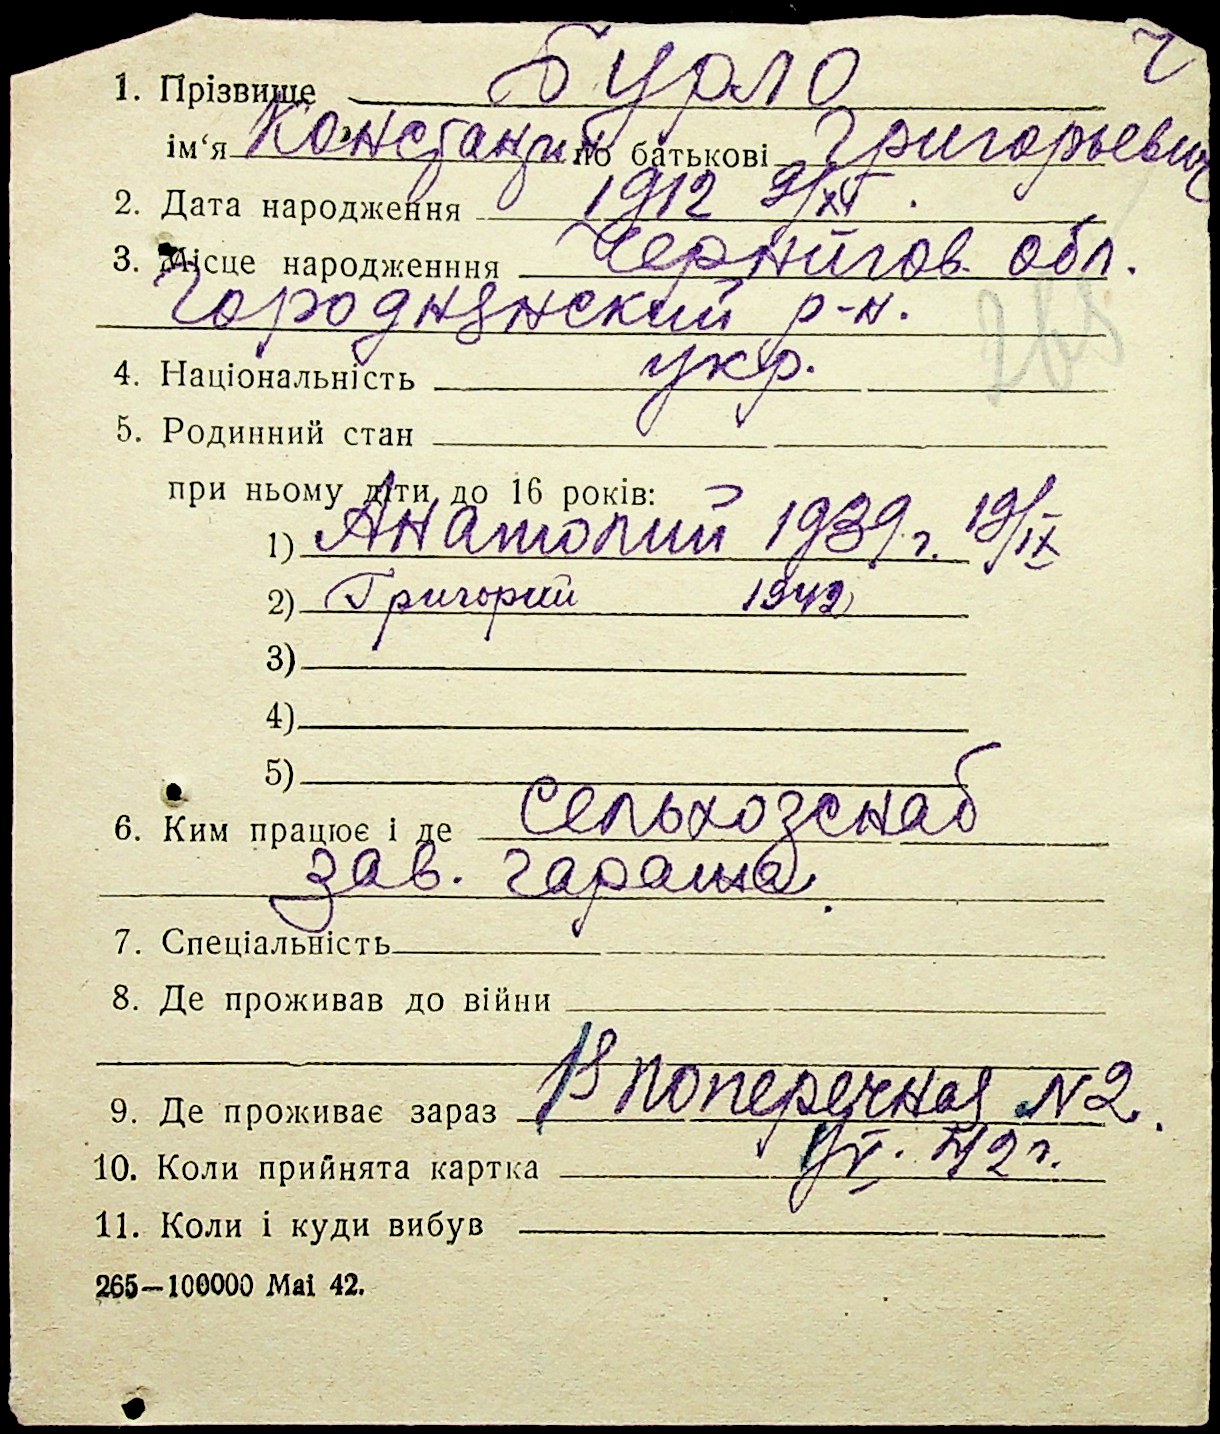 1. Прізвище Бурло
ім‘я Константин по батькові Григорьевич
2. Дата народження 1912 9/XI.
3. Місце народженння Чернигов. обл.
Городнянский р-н.
4. Національність укр.
5. Родинний стан
при ньому діти до 16 років:
1) Анатолий 1939 г. 19/IX
2) Григорий 1942
3)
4)
5)
6. Ким працює і де Сельхозснаб
зав. гаража.
7. Спеціальність
8. Де проживав до війни
9. Де проживає зараз Поперечная N2.
10. Коли прийнята картка 42 г.
11. Коли і куди вибув
265—100000 Mai 42.